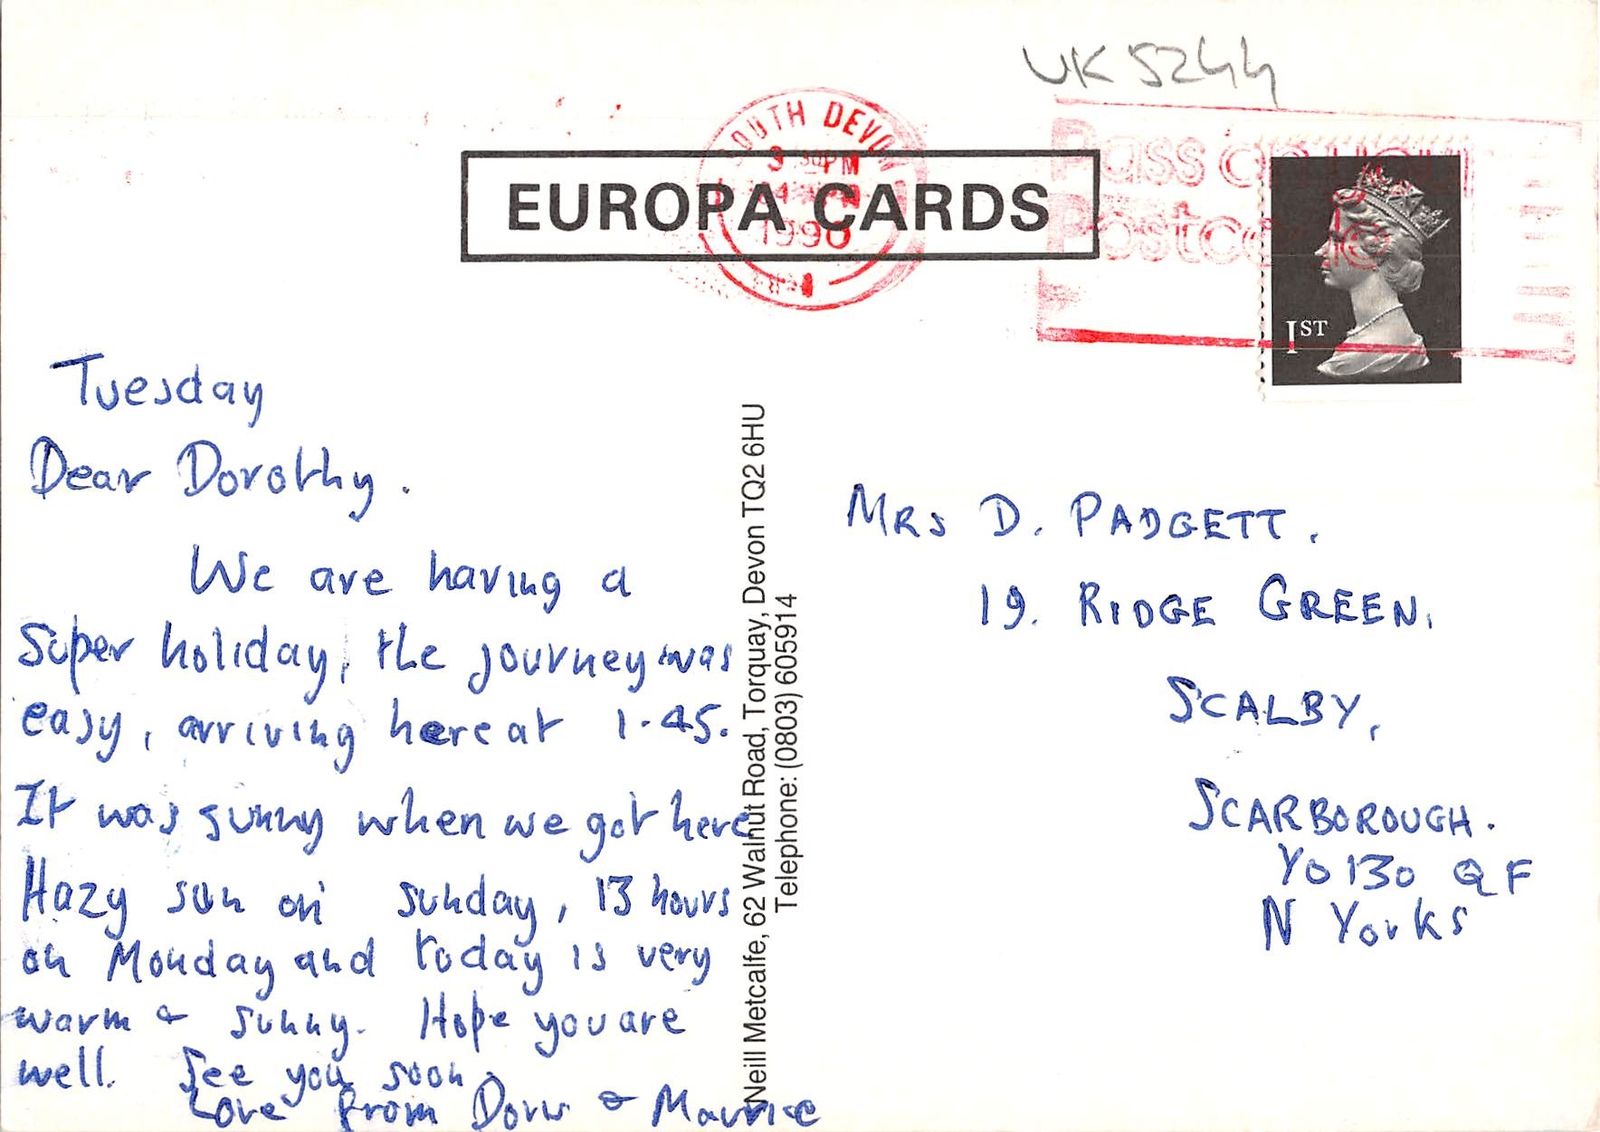 UK 5244
SOUTH DEVON
PM
1990
Pass on your
Postcode
EUROPA CARDS
1ST
Tuesday
Dear Dorothy.
We are having a
super holiday, the journey was
easy, arriving here at 1.45.
It was sunny when we got here
Hazy sun on sunday, 13 hours
on Monday and today is very
warm & sunny. Hope you are
well. See you soon.
Love from Doris & Maurice
Neill Metcalfe, 62 Walnut Road, Torquay, Devon TQ2 6HU
Telephone: (0803) 605914
MRS D. PADGETT.
19. RIDGE GREEN,
SCALBY,
SCARBOROUGH.
YO130 QF
N Yorks